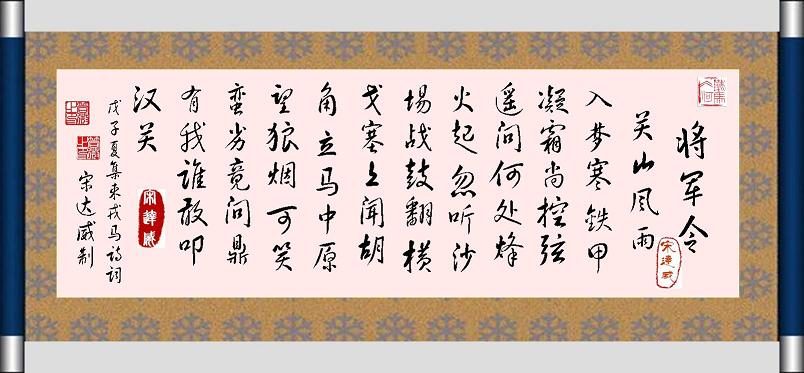 将军令
关山风雨
入梦寒铁甲
凝霜尚控弦
遥问何处烽
火起忽听沙
场战鼓翻横
戈塞上闻胡
角立马中原
望狼烟可笑
蛮夯竟问鼎
有我谁敢叩
汉关
戊子夏集束戎马诗词
宋达威制
宋达威
宋达威